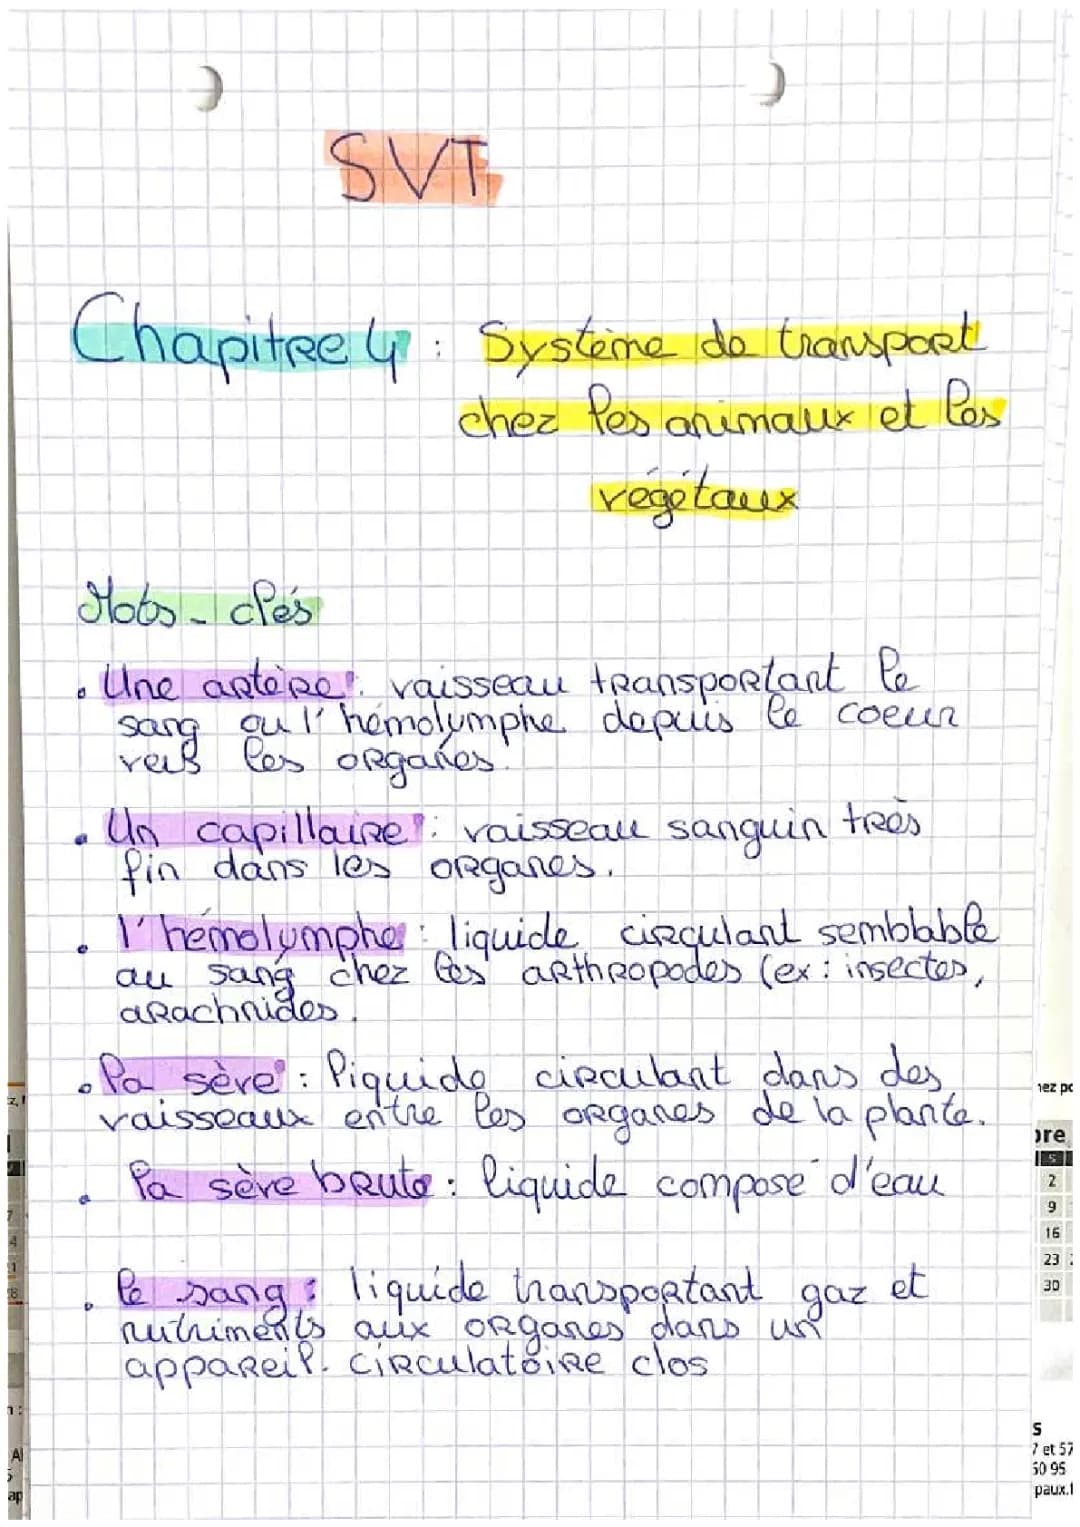 SVT
Chapitre 4 : Système de transport
chez les animaux et les
végétaux
Mots-clés
• Une artère : vaisseau transportant le
sang ou l'hémolymphe depuis le coeur
vers les organes.
• Un capillaire : vaisseau sanguin très
fin dans les organes.
• l'hémolymphe : liquide circulant semblable
au sang chez les arthropodes (ex : insectes,
arachnides.
• la sève : liquide circulant dans des
vaisseaux entre les organes de la plante.
• la sève brute : liquide composé d'eau
• le sang : liquide transportant gaz et
nutriments aux organes dans un
appareil circulatoire clos
hez po
bre
S
2
9
16
23
30
S
7 et 57
50 95
paux.f